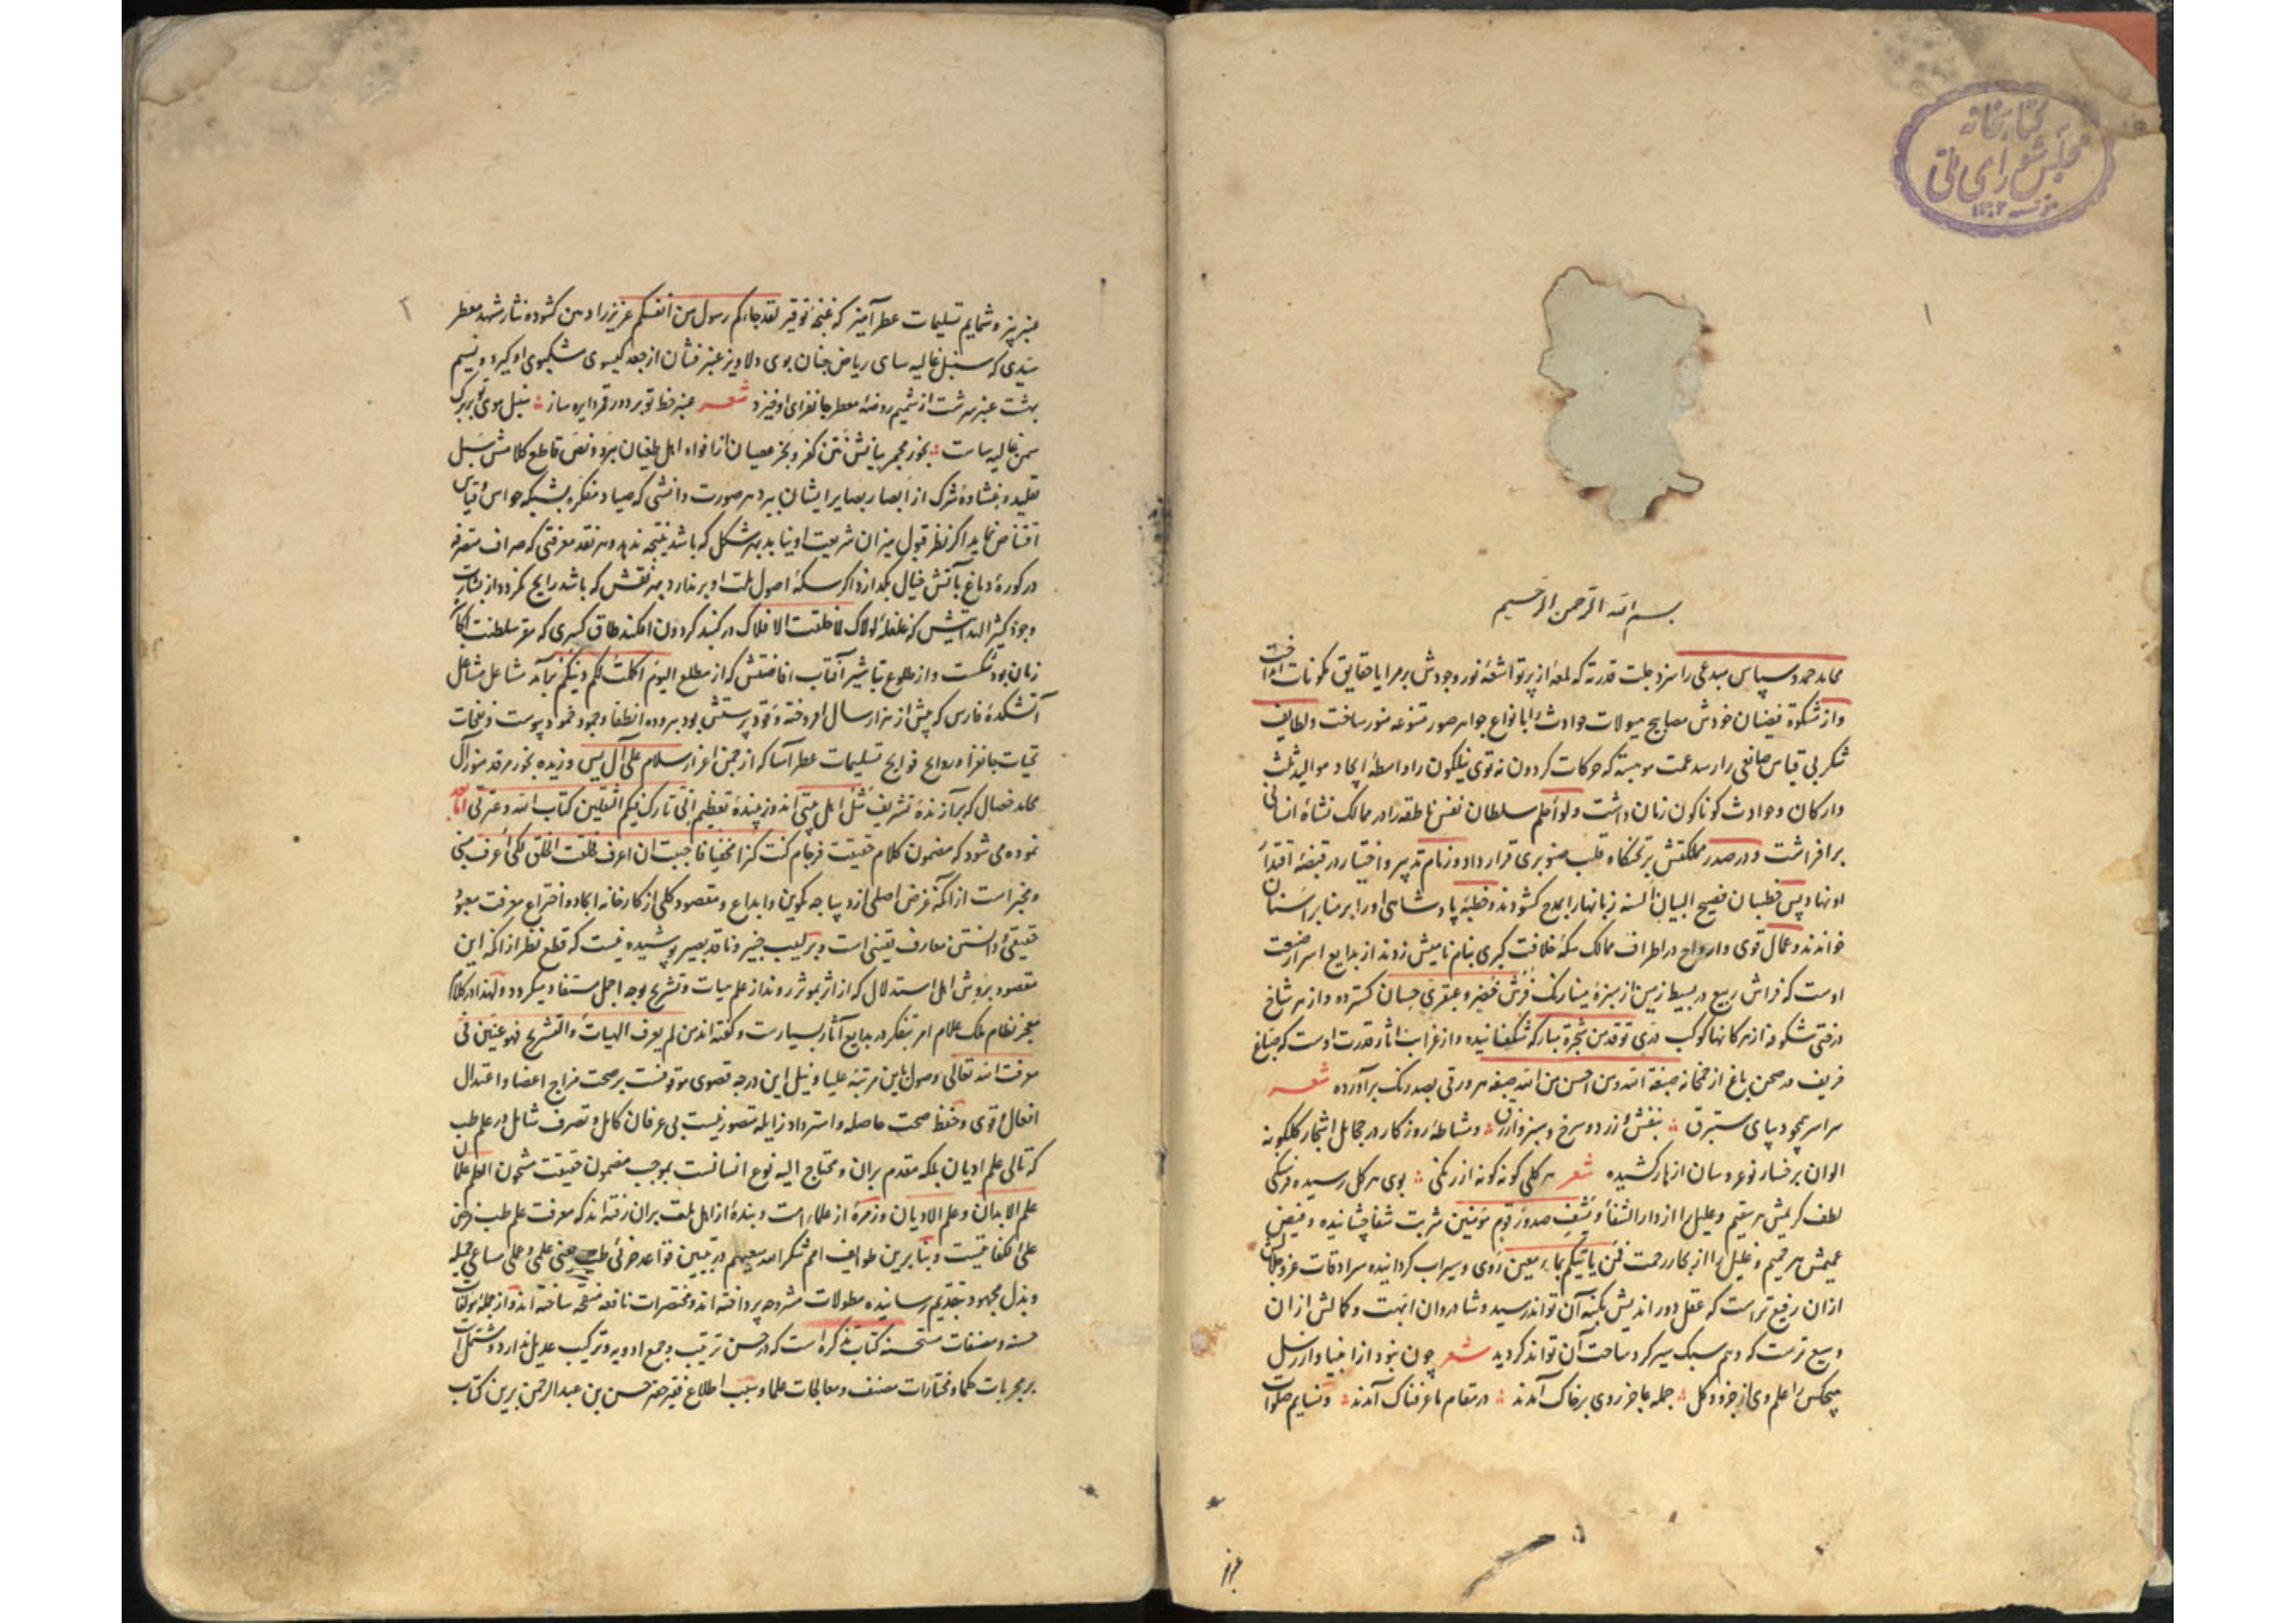 کتابخانه
مجلس شورای ملی
۱
بسم الله الرحمن الرحیم
محامد حمد و سپاس مبدعی را سزد جلت قدرته که لمعه از پرتو اشعه نور وجودش بر مرایا حقایق مکونات
واز مشکوة فیضان خودش مصابیح هیولات حوادث را بانواع جواهر صور متنوعه منور ساخت ولطایف
شکر بی قیاس صانعی را رسد عمت موهبته که حرکات کردون نه توی نیلکون را واسطۀ ایجاد موالید ثلث
وارکان وحوادث کوناکون زمان داشت ولواء علم سلطان نفس ناطقه را در ممالک نشاۀ انسانی
برافراشت ودر صدر مملکتش بر تختگاه قلب صنوبری قرار داد وزمام تدبیر واختیار در قبضۀ اقتدا
او نهاد پس خطیبان فصیح البیان السنه زبانها را بمدح کشودند وخطبۀ پادشاهی او را بر منابر اسنان
خواندند وعمال قوی وارواح در اطراف ممالک سکۀ خلافت کبری بنام نامیش زدند از بدایع اسرار صنعت
اوست که فراش ربیع در بسیط زمین از سبزۀ مینا رنک فرش خضر وعبقری حسان کسترده واز هر شاخ
درختی شکوفه از هر کانها کوکب دری توقد من شجرة مبارکة شکفانیده واز غرایب اثار قدرت اوست که صباغ
خریف در صحن باغ از خمخانه صبغة الله ومن احسن من الله صبغة هر ورقی بصد رنک برآورده شعر
سراسر همچو دیبای ستبرق بنفش وزرد وسرخ وسبز وازرق ومشاطۀ روزکار در حجال اشجار کلکونه
الوان بر رخسار نوعروسان ازهار کشیده شعر هر کلی کونه کونه از رنکی بوی هر کل رسیده فرسنکی
لطف کریمش هر سقیم وعلیل را از دار الشفاء ویشف صدور قوم مؤمنین شربت شفا چشانیده وفیض
عمیمش هر حمیم وغلیل را از بحار رحمت فمن یاتیکم بماء معین روی وسیراب کردانیده سرادقات عز وجلالش
ازان رفیع تر است که عقل دور اندیش بکنه آن تواند رسید وشادروان ابهت وکمالش ازان
وسیع ترست که وهم سبک سیر کرد ساحت آن تواند کردید شعر چون نبود از انبیا واز رسل
هیچکس را علم وی از جزو وکل جمله عاجز روی بر خاک آمدند در مقام ما عرفناک آمدند ونسایم صلوات
۲
عنبر بیز وشمایم تسلیمات عطر آمیز که غنچه توقیر لقد جاءکم رسول من انفسکم عزیز را دهن کشوده نثار مشهد معطر
سیدی که سنبل غالیه سای ریاض جنان بوی دلاویز عنبر فشان از جعد کیسوی مشکبوی او کیرد ونسیم
بهشت عنبر سرشت از شمیم روضۀ معطر جانفزای او خیزد شعر عنبر خط تو بر دور قمر دایره ساز سنبل موی تو بر برک
سمن غالیه ساست بخور مجمر بیانش نتن کفر وبخر عصیان از افواه اهل طغیان ببرد ونص قاطع کلامش سبل
تقلید وغشاوۀ شرک از ابصار بصایر ایشان ببرد هر صورت دانشی که صیاد متفکره بشبکه حواس وقیاس
اقتناص نماید اکر نظر قبول میزان شریعت او نیابد بهر شکل که باشد نتیجه ندهد وهر نقد معرفتی که صراف متصرفه
در کورۀ دماغ بآتش خیال بکدازد اکر سکۀ اصول ملت او برندارد بهر نقش که باشد رایج نکردد از بشارت
وجود کثیر الهدایتش که غلغلۀ لولاک لما خلقت الافلاک در کنبد کردون افکند طاق کسری که مقر سلطنت
زمان بود شکست واز طلوع تباشیر آفتاب افاضتش که از مطلع الیوم اکملت لکم دینکم برآمد مشاعل مشاعل
آتشکدۀ فارس که پیش از هزار سال افروخته وقود پرستش بود ببروده انطفا وجمود خمود پیوست ونفحات
تحیات جانفزا وروایح فوایح تسلیمات عطر آسا که از چمن اعزاز سلام علی آل یس وزیده بخور مرقد منور آل
محامد خصال که برازندۀ تشریف مثل اهل بیتی اند وزیبندۀ تعظیم انی تارک فیکم الثقلین کتاب الله وعترتی اما بعد
نموده می شود که مضمون کلام حقیقت فرجام کنت کنزا مخفیا فاحببت ان اعرف فخلقت الخلق لکی اعرف مبنی
ومخبر است از آنکه غرض اصلی از دیباجه تکوین وابداع ومقصود کلی از کارخانه ایجاد واختراع معرفت معبود
حقیقی ودانستن معارف یقینی است وبر لبیب خبیر وناقد بصیر پوشیده نیست که قطع نظر از آنکه این
مقصود بروش اهل استدلال که از اثر بموثر روند از علم هیات وتشریح بوجه اجمل مستفاد میکردد ولهذا در کلام
معجز نظام ملک علام امر بتفکر در بدایع آثار بسیارست وکفته اند من لم یعرف الهیات والتشریح فهو عنین فی
معرفت الله تعالی وصول باین مرتبۀ علیا ونیل این درجه قصوی موقوفست بر صحت مزاج اعضا واعتدال
افعال وقوی وحفظ صحت حاصله واسترداد زایله متصور نیست بی عرفان کامل وتصرف شامل در علم طب
که تالی علم ادیان بلکه مقدم بران ومحتاج الیه نوع انسانست بموجب مضمون حقیقت مشحون العلم علمان
علم الابدان وعلم الادیان وزمرۀ از علماء امت وبندۀ از اهل ملت بران رفته اند که معرفت علم طب فرض
علی الکفایتست وبنابرین طوایف امم شکر الله سعیهم در تبیین قواعد جزئی طب یعنی علمی وعملی مساعی جمیله
وبذل مجهود بتقدیم رسانیده مطولات مشروحه پرداخته اند ومختصرات نافعه منقحه ساخته اند واز جملۀ مؤلفات
حسنه ومصنفات مستحسنه کتاب تذکره است که در حسن ترتیب وجمع ادویه وترکیب عدیل ندارد ومشتمل است
بر مجربات حکما ومختارات مصنف ومعالجات علما وسبب اطلاع فقیر حقیر حسن بن عبد الرحمن برین کتاب